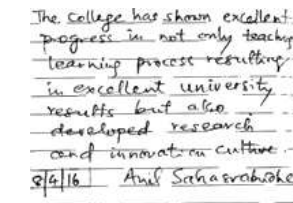 The College has shown excellent
progress in not only teaching
learning process resulting
in excellent university
results but also
developed research
and innovation culture.
8/4/16 Anil Sahasrabudhe